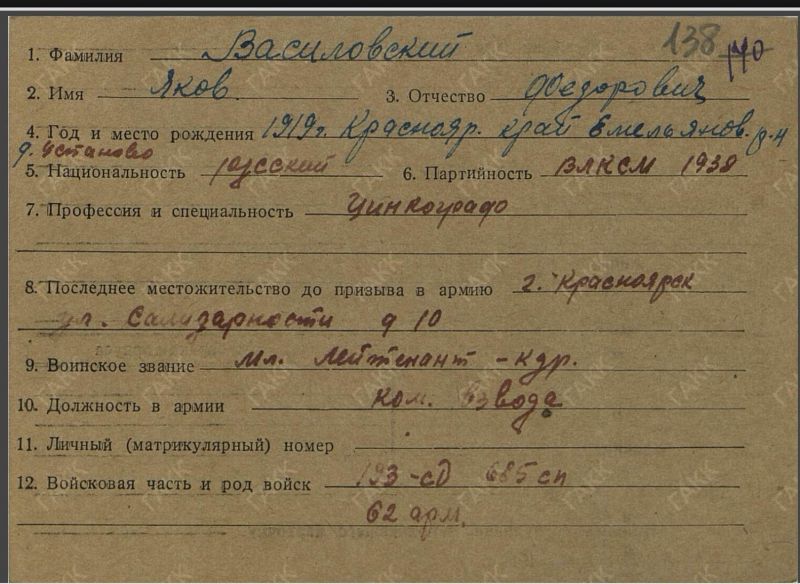 138 140
1. Фамилия Василовский
2. Имя Яков 3. Отчество Федорович
4. Год и место рождения 1919 г. Краснояр. край Емельянов. р-н
д. Установо
5. Национальность русский 6. Партийность ВЛКСМ 1938
7. Профессия и специальность Цинкограф
8. Последнее местожительство до призыва в армию г. Красноярск
ул. Салидарности д 10
9. Воинское звание Мл. Лейтенант - кдр.
10. Должность в армии ком. взвода
11. Личный (матрикулярный) номер
12. Войсковая часть и род войск 193-сд 685 сп
62 арм.
ГАКК